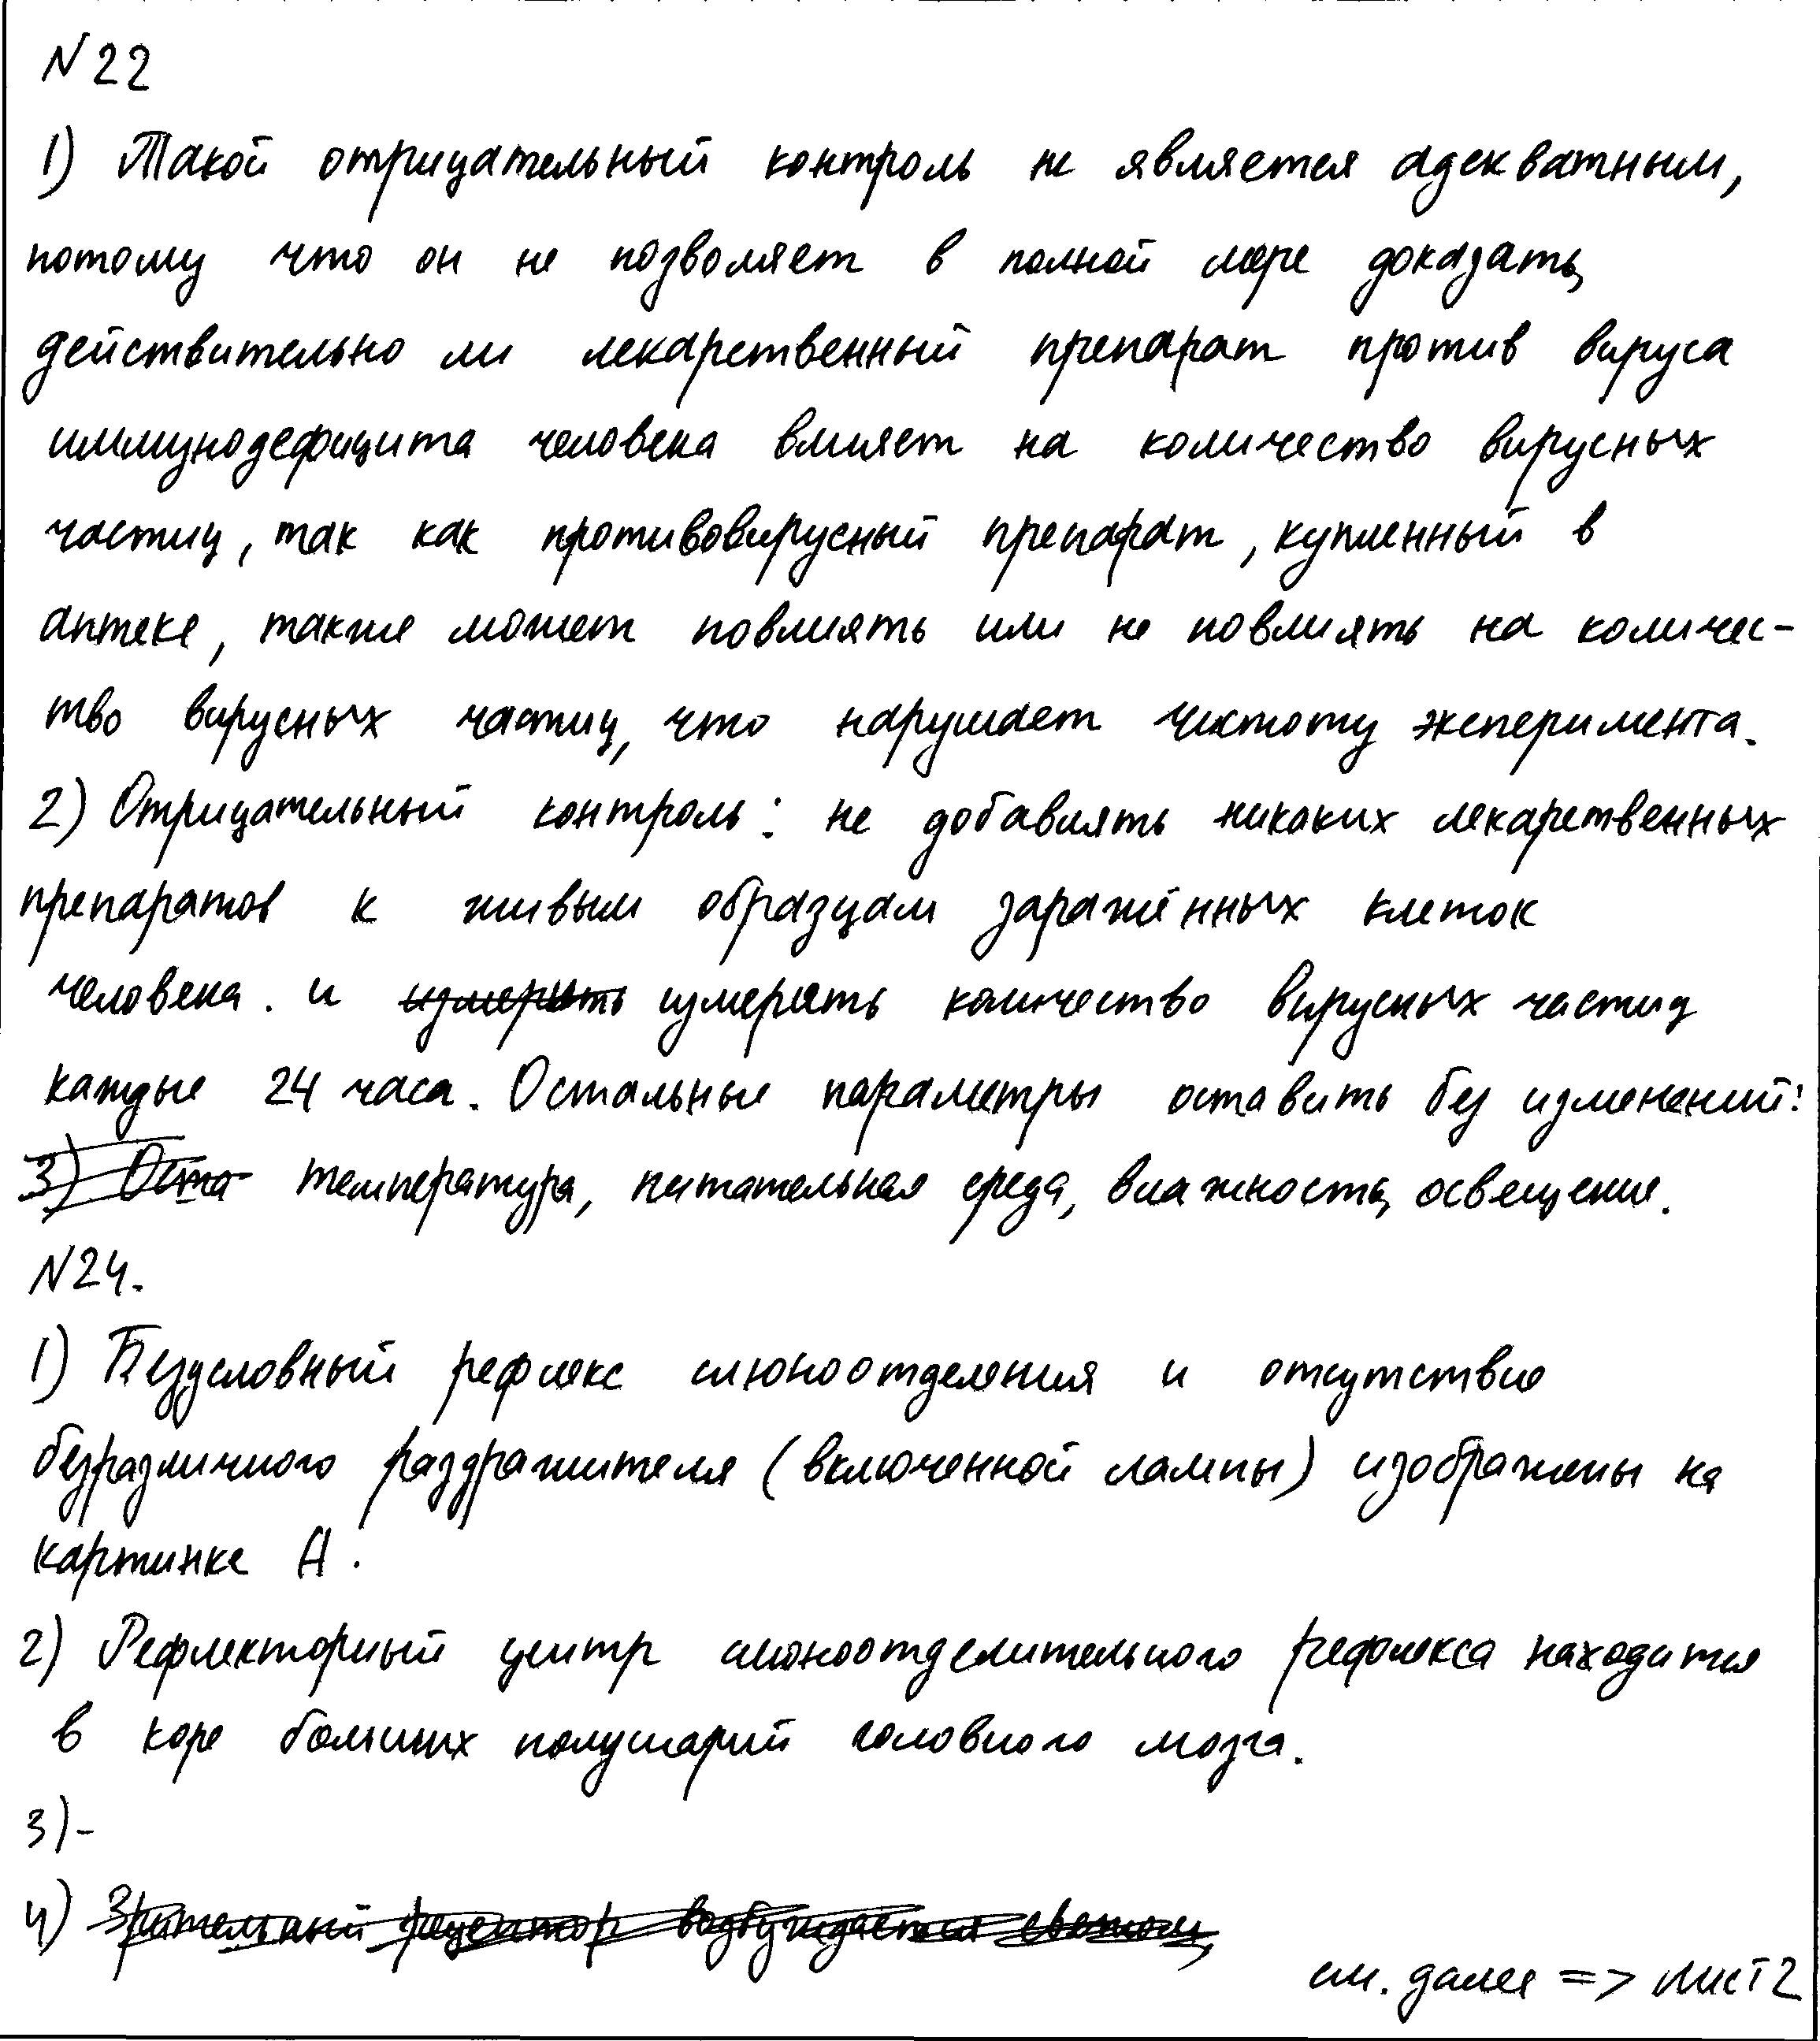 N 22
1) Такой отрицательный контроль не является адекватным,
потому что он не позволяет в полной мере доказать,
действительно ли лекарственный препарат против вируса
иммунодефицита человека влияет на количество вирусных
частиц, так как противовирусный препарат, купленный в
аптеке, также может повлиять или не повлиять на количес-
тво вирусных частиц, что нарушает чистоту эксперимента.
2) Отрицательный контроль: не добавлять никаких лекарственных
препаратов к живым образцам заражённых клеток
человека. и измерить измерять количество вирусных частиц
каждые 24 часа. Остальные параметры оставить без изменений:
3) Оста температура, питательная среда, влажность, освещение.
N24.
1) Безусловный рефлекс слюноотделения и отсутствие
безразличного раздражителя (включенной лампы) изображены на
картинке А.
2) Рефлекторный центр слюноотделительного рефлекса находится
в коре больших полушарий головного мозга.
3) -
4) Зрительный рецептор возбуждается светом,
см. далее => лист 2